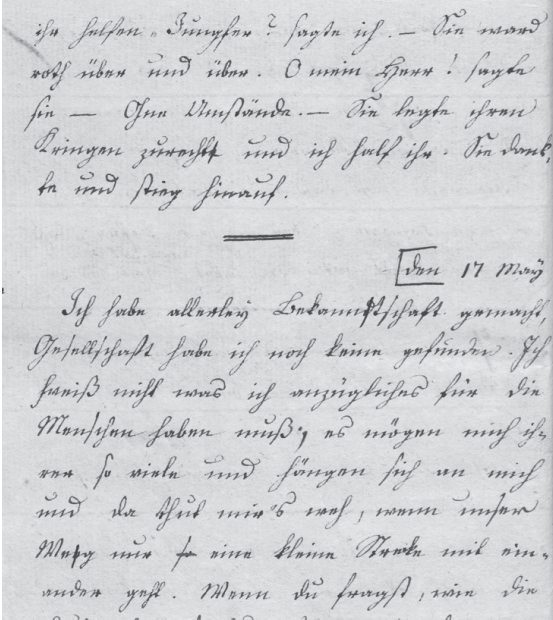 ihr helfen, Jungfer? sagte ich. — Sie ward
roth über und über. O mein Herr! sagte
sie — Ohne Umstände. — Sie legte ihren
Kringen zurecht und ich half ihr. Sie dank,
te und stieg hinauf.
den 17 May
Ich habe allerley Bekanntschaft gemacht,
Gesellschaft habe ich noch keine gefunden. Ich
weiß nicht was ich anzügliches für die
Menschen haben muß, es mögen mich ih-
rer so viele und hängen sich an mich
und da thut mir's weh, wenn unser
Weg nur eine kleine Strecke mit ein-
ander geht. Wenn du fragst, wie die